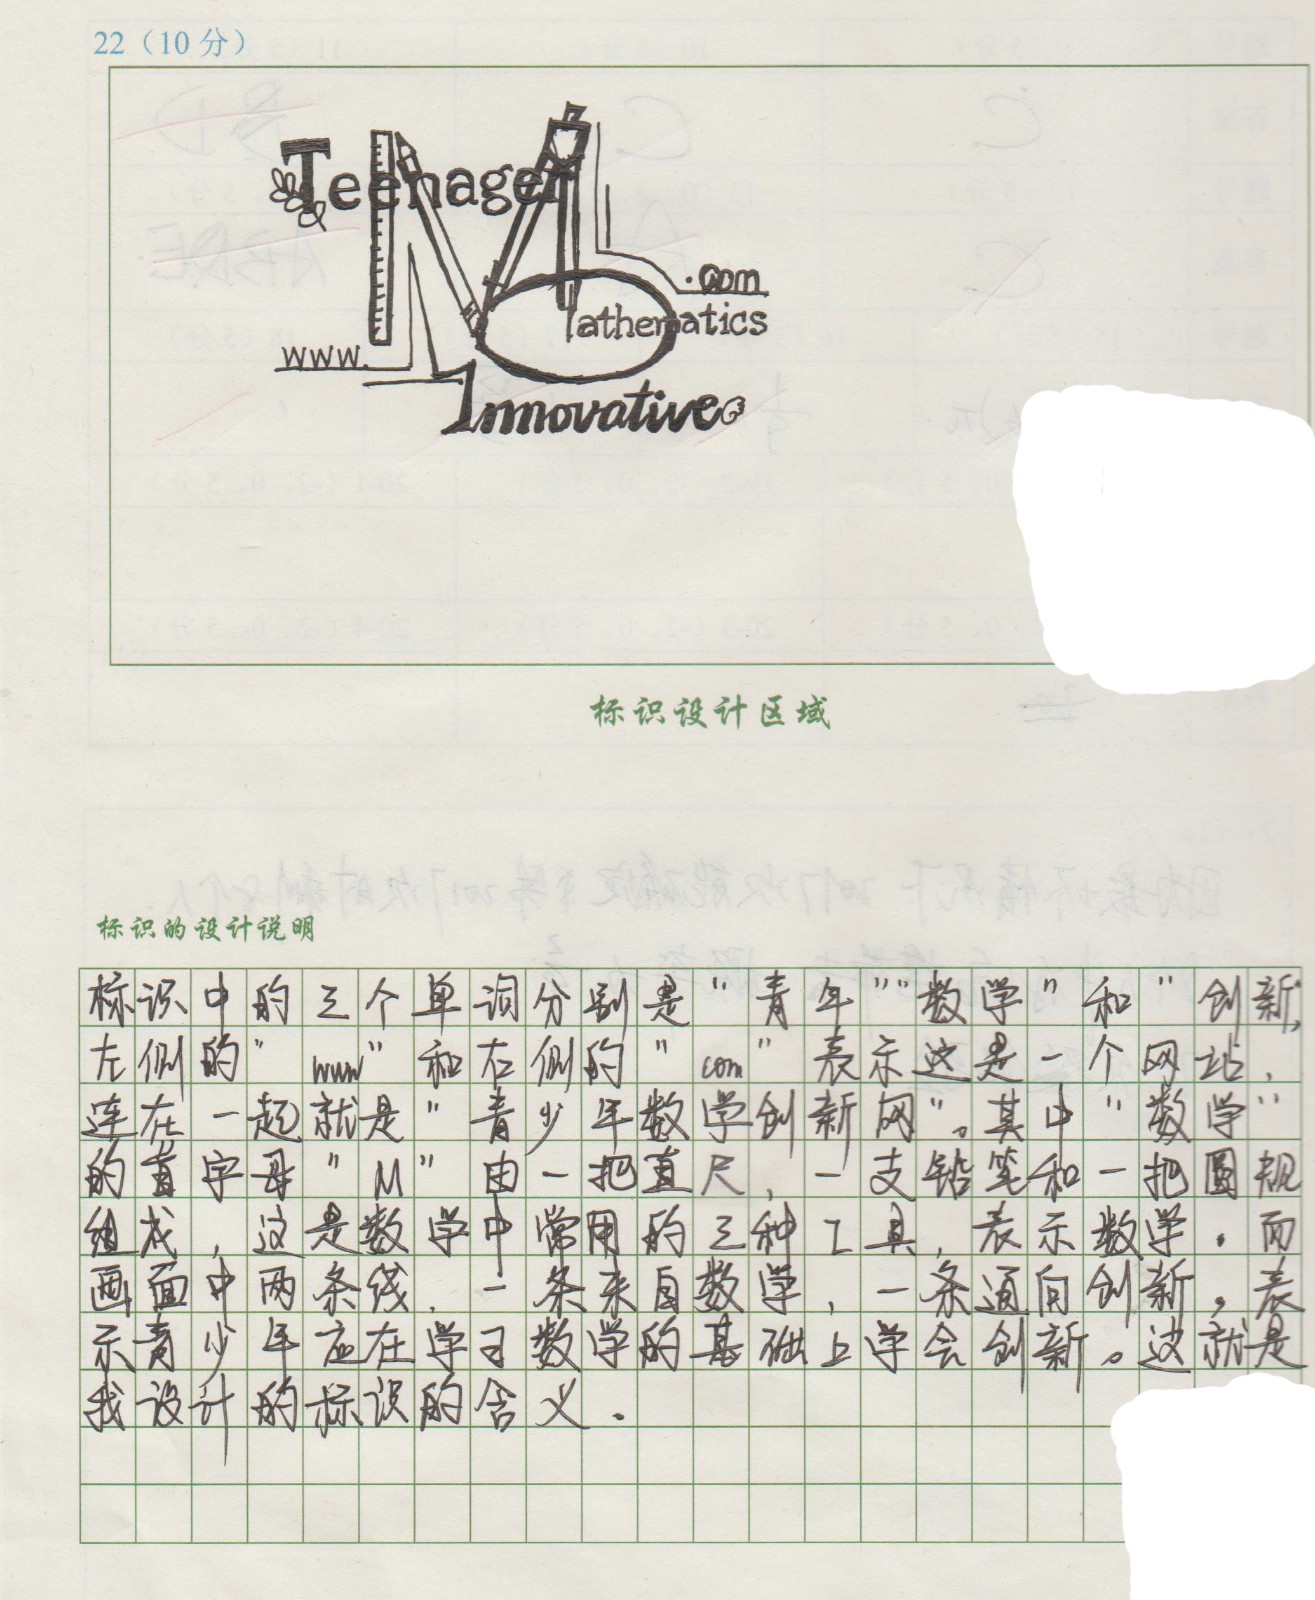 22（10 分）
Teenager
.com
Mathematics
www.
Innovative
标识设计区域
标识的设计说明
标识中的三个单词分别是“青年”“数学”和“创新”,
左侧的“www”和右侧的“com”表示这是一个网站，
连在一起就是“青少年数学创新网”。其中“数学”
的首字母“M”由一把直尺，一支铅笔和一把圆规
组成，这是数学中常用的三种工具，表示数学．而
画面中两条线，一条来自数学，一条通向创新，表
示青少年应在学习数学的基础上学会创新。这就是
我设计的标识的含义．